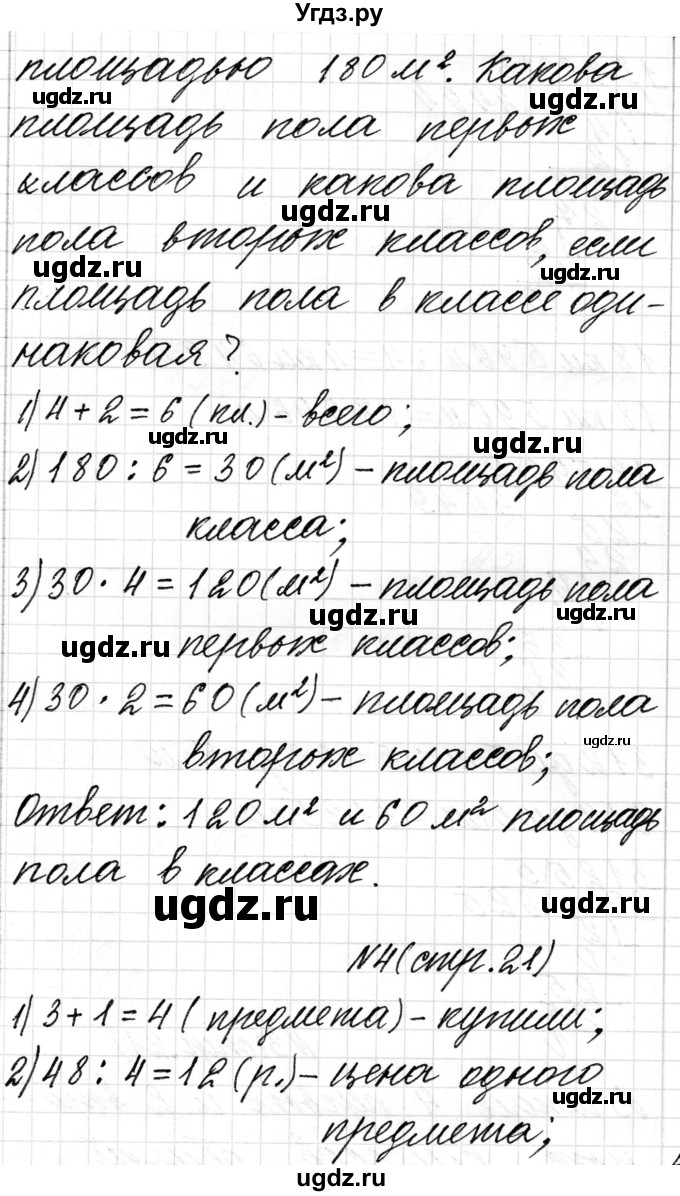 Угдз.ру
площадью 180 м². Какова
площадь пола первых
классов и какова площадь
пола вторых классов, если
площадь пола в классе оди-
наковая?
1) 4 + 2 = 6 (кл.) - всего;
2) 180 : 6 = 30 (м²) - площадь пола
класса;
3) 30 · 4 = 120 (м²) - площадь пола
первых классов;
4) 30 · 2 = 60 (м²) - площадь пола
вторых классов;
Ответ: 120 м² и 60 м² площадь
пола в классах.
N4 (стр. 21)
1) 3 + 1 = 4 (предмета) - купили;
2) 48 : 4 = 12 (р.) - цена одного
предмета;
ugdz.ru
ugdz.ru
ugdz.ru
ugdz.ru
ugdz.ru
ugdz.ru
ugdz.ru
ugdz.ru
ugdz.ru
ugdz.ru
ugdz.ru
ugdz.ru
ugdz.ru
ugdz.ru